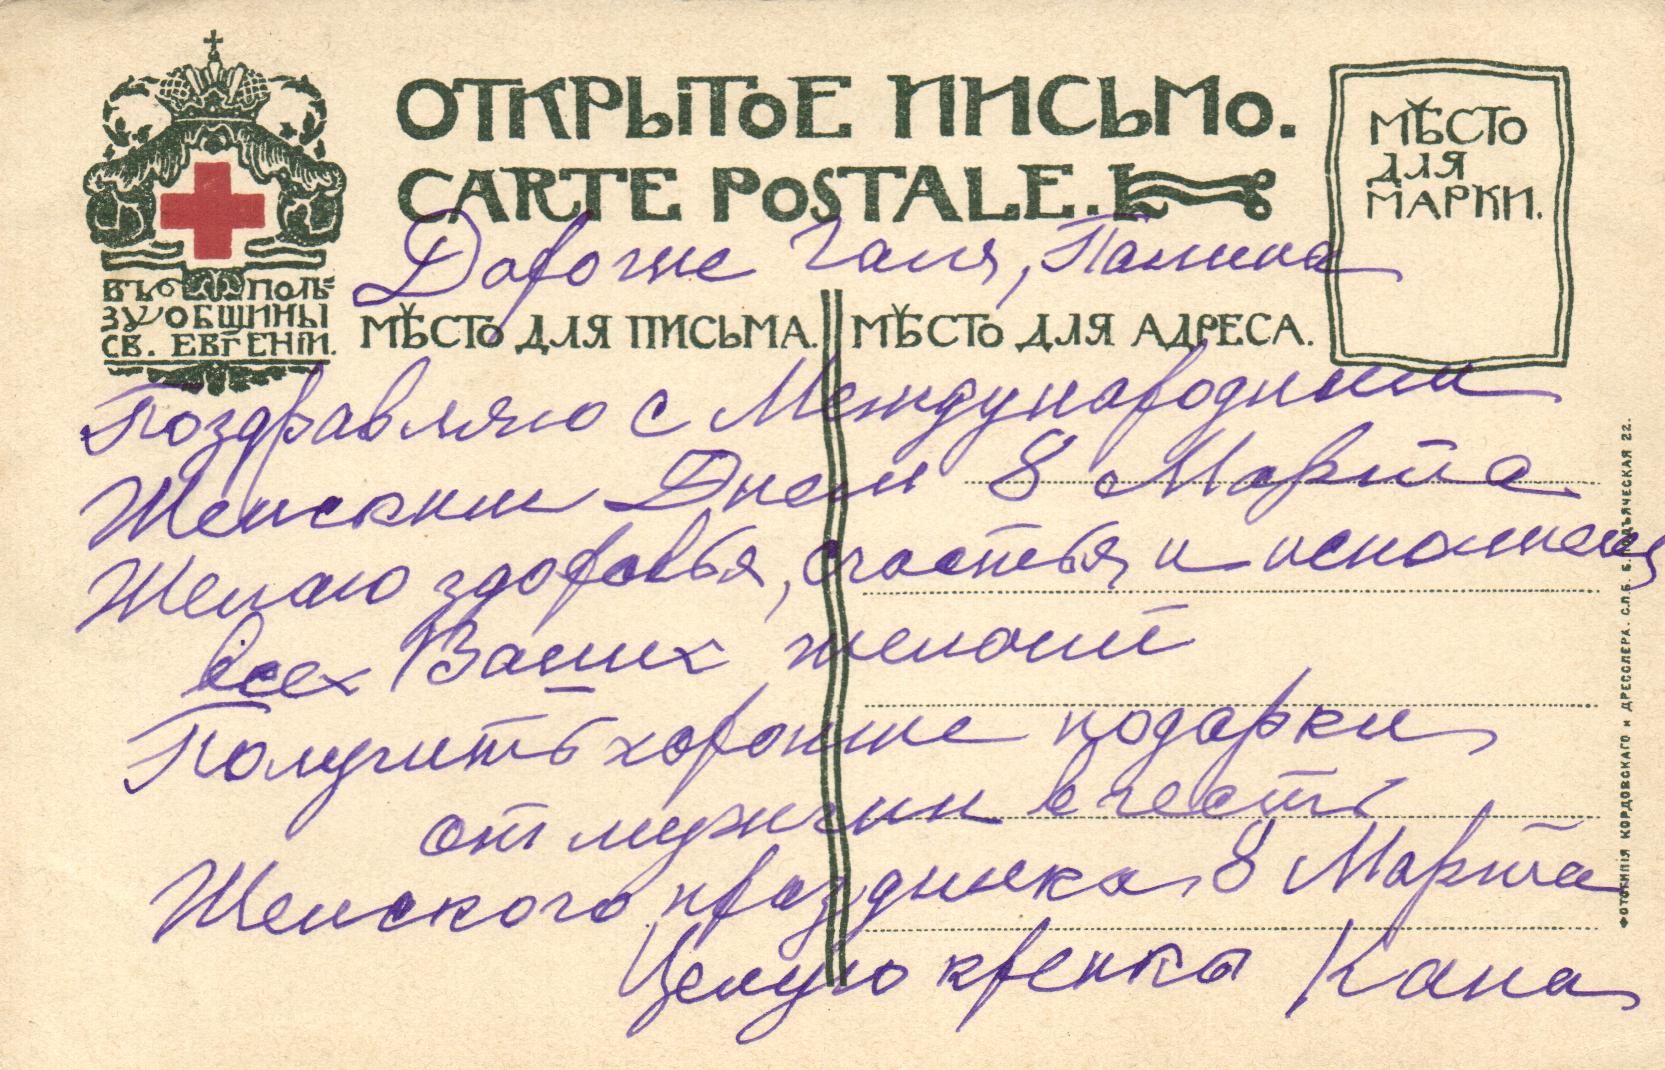 ОТКРЫТОЕ ПИСЬМО.
CARTE POSTALE.
МѢСТО
ДЛЯ
МАРКИ.
ВЪ ПОЛЬ=
ЗУ ОБЩИНЫ
СВ. ЕВГЕНІИ.
Дорогие Галя, Галина
МѢСТО ДЛЯ ПИСЬМА. МѢСТО ДЛЯ АДРЕСА.
Поздравляю с Международным
Женским Днем 8 Марта
Желаю здоровья, счастья и исполнения
всех Ваших желаний
Получить хорошие подарки
от мужчин в честь
Женского праздника 8 Марта
Целую крепко
ФОТОТИПІЯ КОРДОВСКАГО и ДРЕССЛЕРА. С.П.Б. Б. ПОДЬЯЧЕСКАЯ 22.